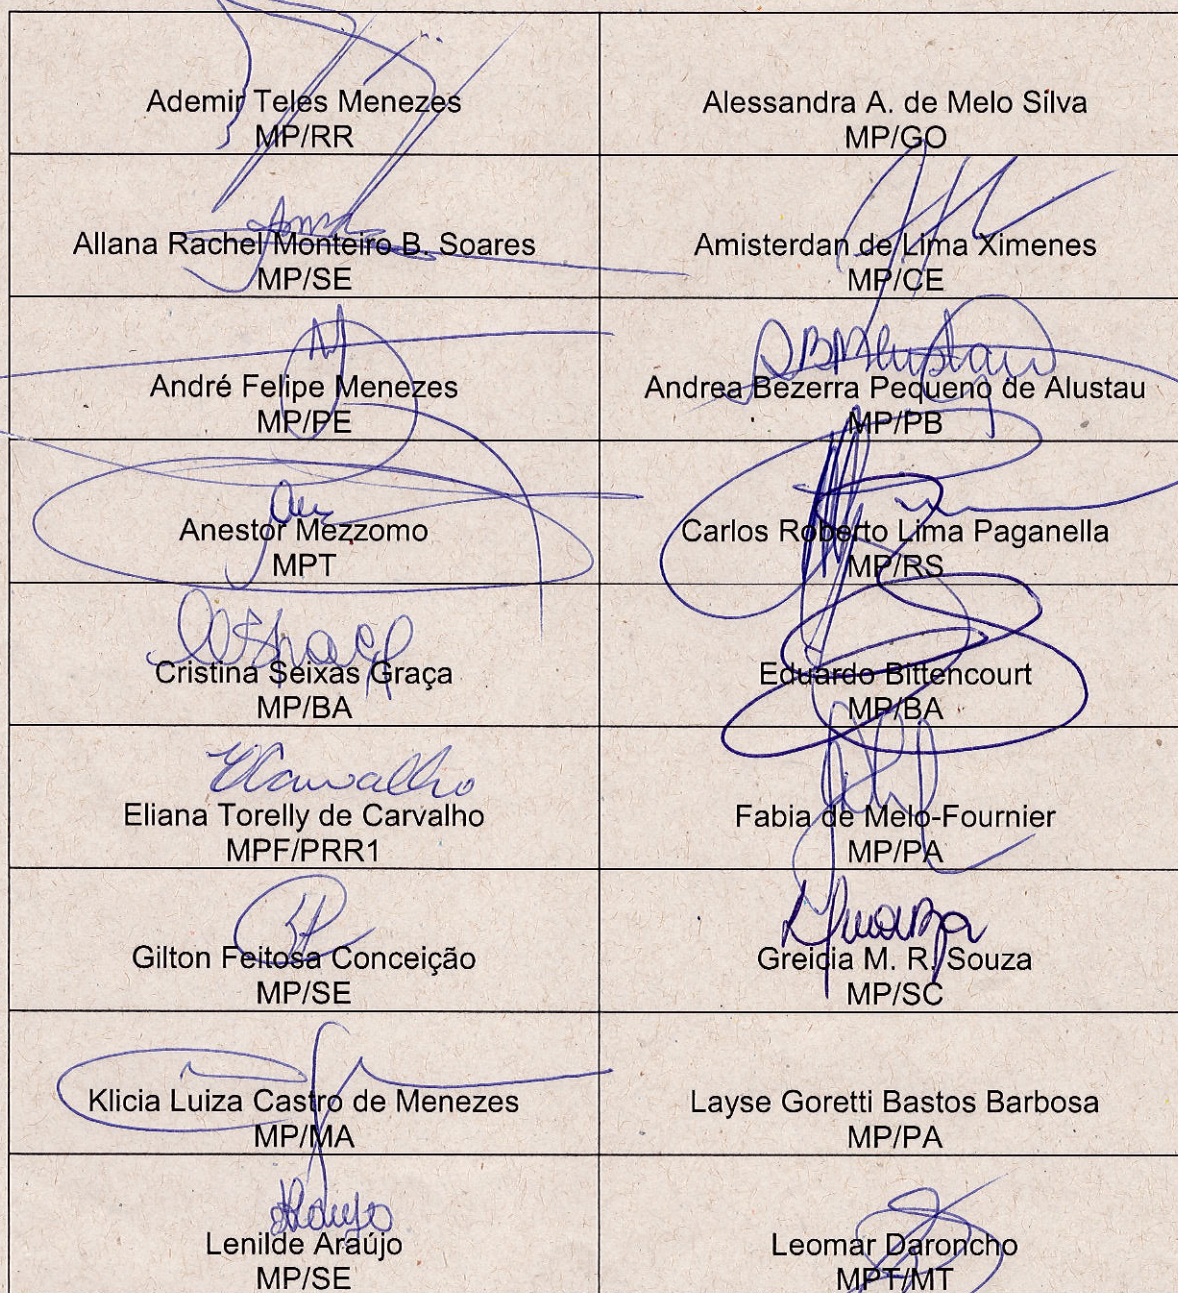 Ademir Teles Menezes
MP/RR
Alessandra A. de Melo Silva
MP/GO
Allana Rachel Monteiro B. Soares
MP/SE
Amisterdan de Lima Ximenes
MP/CE
André Felipe Menezes
MP/PE
Andrea Bezerra Pequeno de Alustau
MP/PB
Anestor Mezzomo
MPT
Carlos Roberto Lima Paganella
MP/RS
Cristina Seixas Graça
MP/BA
Eduardo Bittencourt
MP/BA
ECarvalho
Eliana Torelly de Carvalho
MPF/PRR1
Fabia de Melo-Fournier
MP/PA
Gilton Feitosa Conceição
MP/SE
Greicia M. R. Souza
MP/SC
Klicia Luiza Castro de Menezes
MP/MA
Layse Goretti Bastos Barbosa
MP/PA
Lenilde Araújo
MP/SE
Leomar Daroncho
MPT/MT